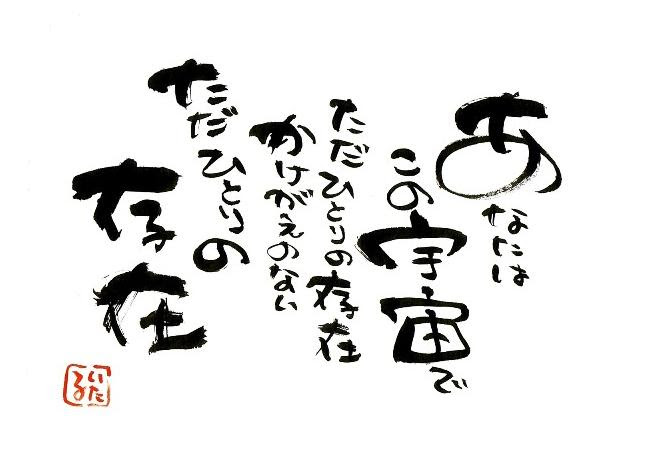 あなたは
この宇宙で
ただひとりの存在
かけがえのない
ただひとりの
存在